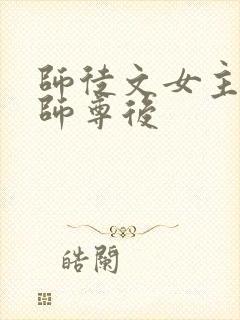 師徒文女主
師尊後
皓闌